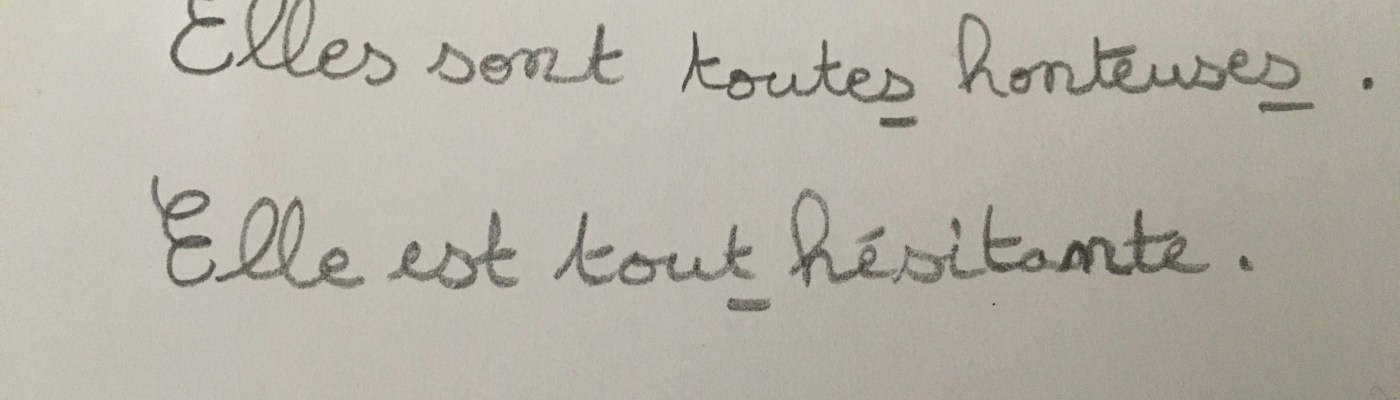 Elles sont toutes honteuses .
Elle est tout hésitante .